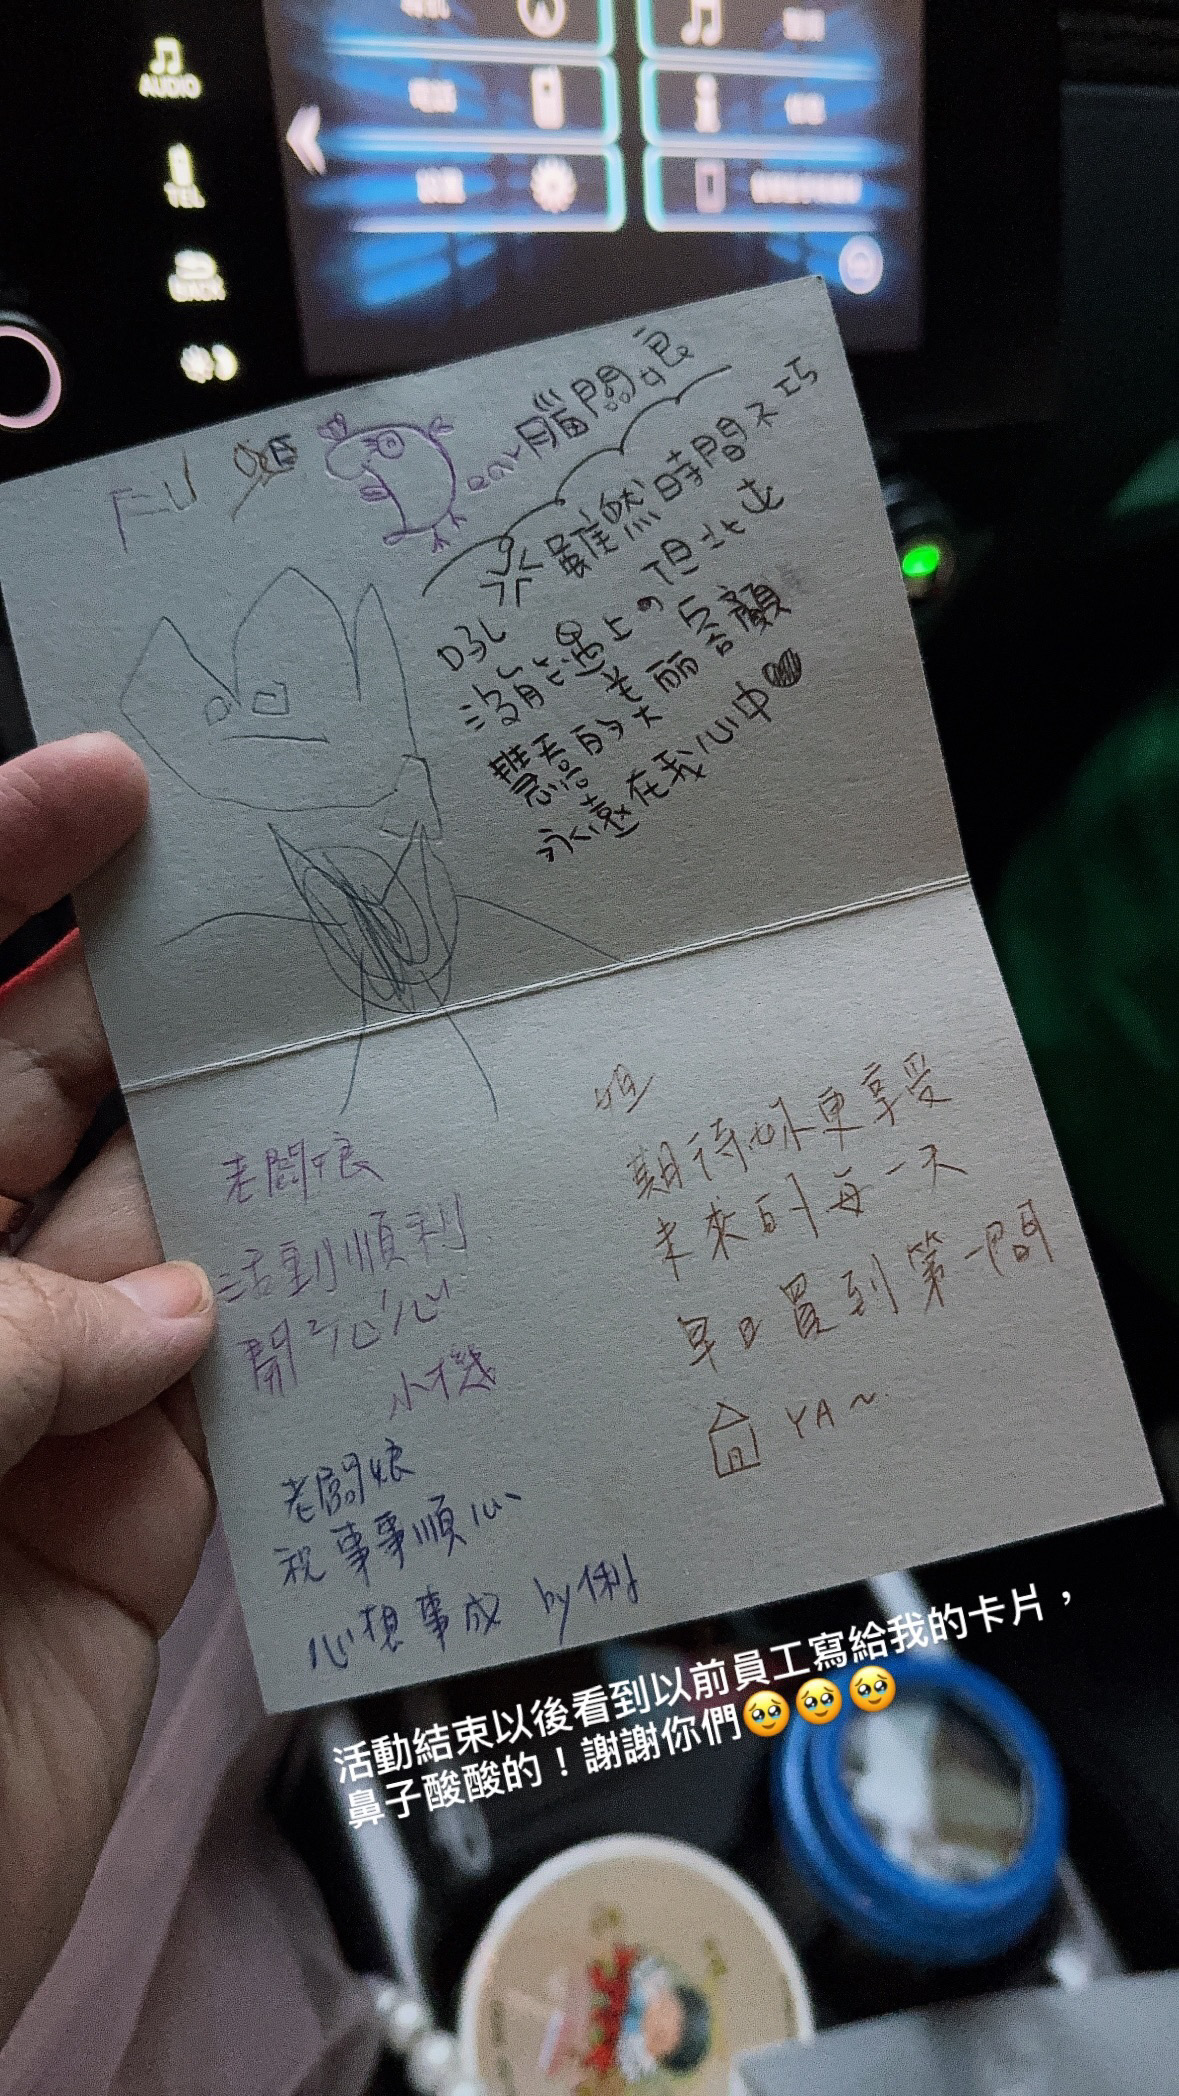 AUDIO
TEL
BACK
FU
雖然時間不巧
沒能遇上
但妳
美麗容顏
永遠在我心中
姐
期待妳更享受
未來的每一天
早日買到第一間
YA~
老闆娘
活動順利
開心心
小機
老闆娘
祝事事順心
心想事成 by俐
活動結束以後看到以前員工寫給我的卡片，
鼻子酸酸的！謝謝你們🥹🥹🥹